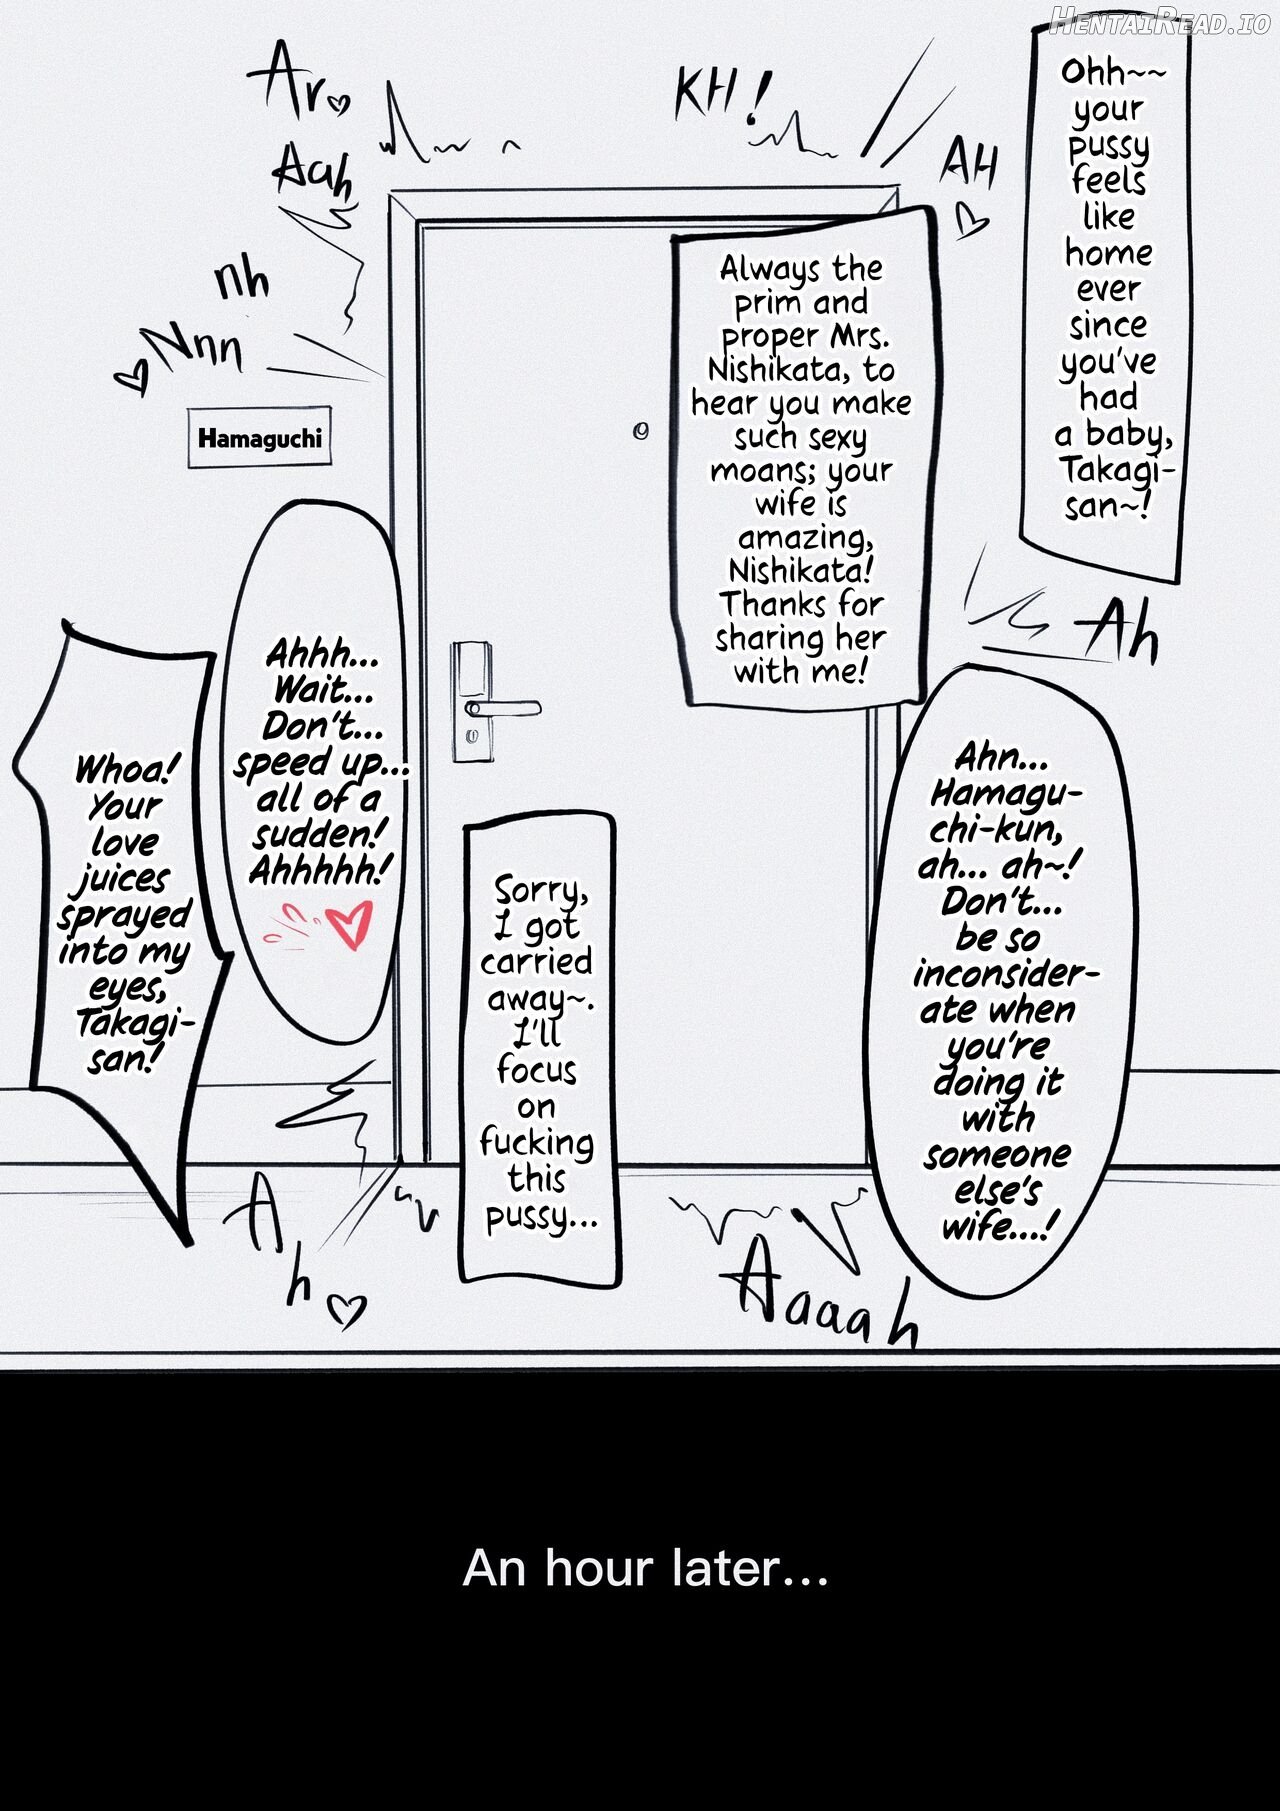 HENTAIREAD.IO
Ohh~~
your
pussy
feels
like
home
ever
since
you've
had
a baby,
Takagi-
san~!
Ar
Aah
KH!
AH
nh
Nnn
Always the
prim and
proper Mrs.
Nishikata, to
hear you make
such sexy
moans; your
wife is
amazing,
Nishikata!
Thanks for
sharing her
with me!
Hamaguchi
Ah
Ahn...
Hamagu-
chi-kun,
ah... ah~!
Don't...
be so
inconsider-
ate when
you're
doing it
with
someone
else's
wife...!
Sorry,
I got
carried
away~.
I'll
focus
on
fucking
this
pussy...
Ahhh...
Wait...
Don't...
speed up...
all of a
sudden!
Ahhhhh!
Whoa!
Your
love
juices
sprayed
into my
eyes,
Takagi-
san!
Ah
Aaaah
An hour later...